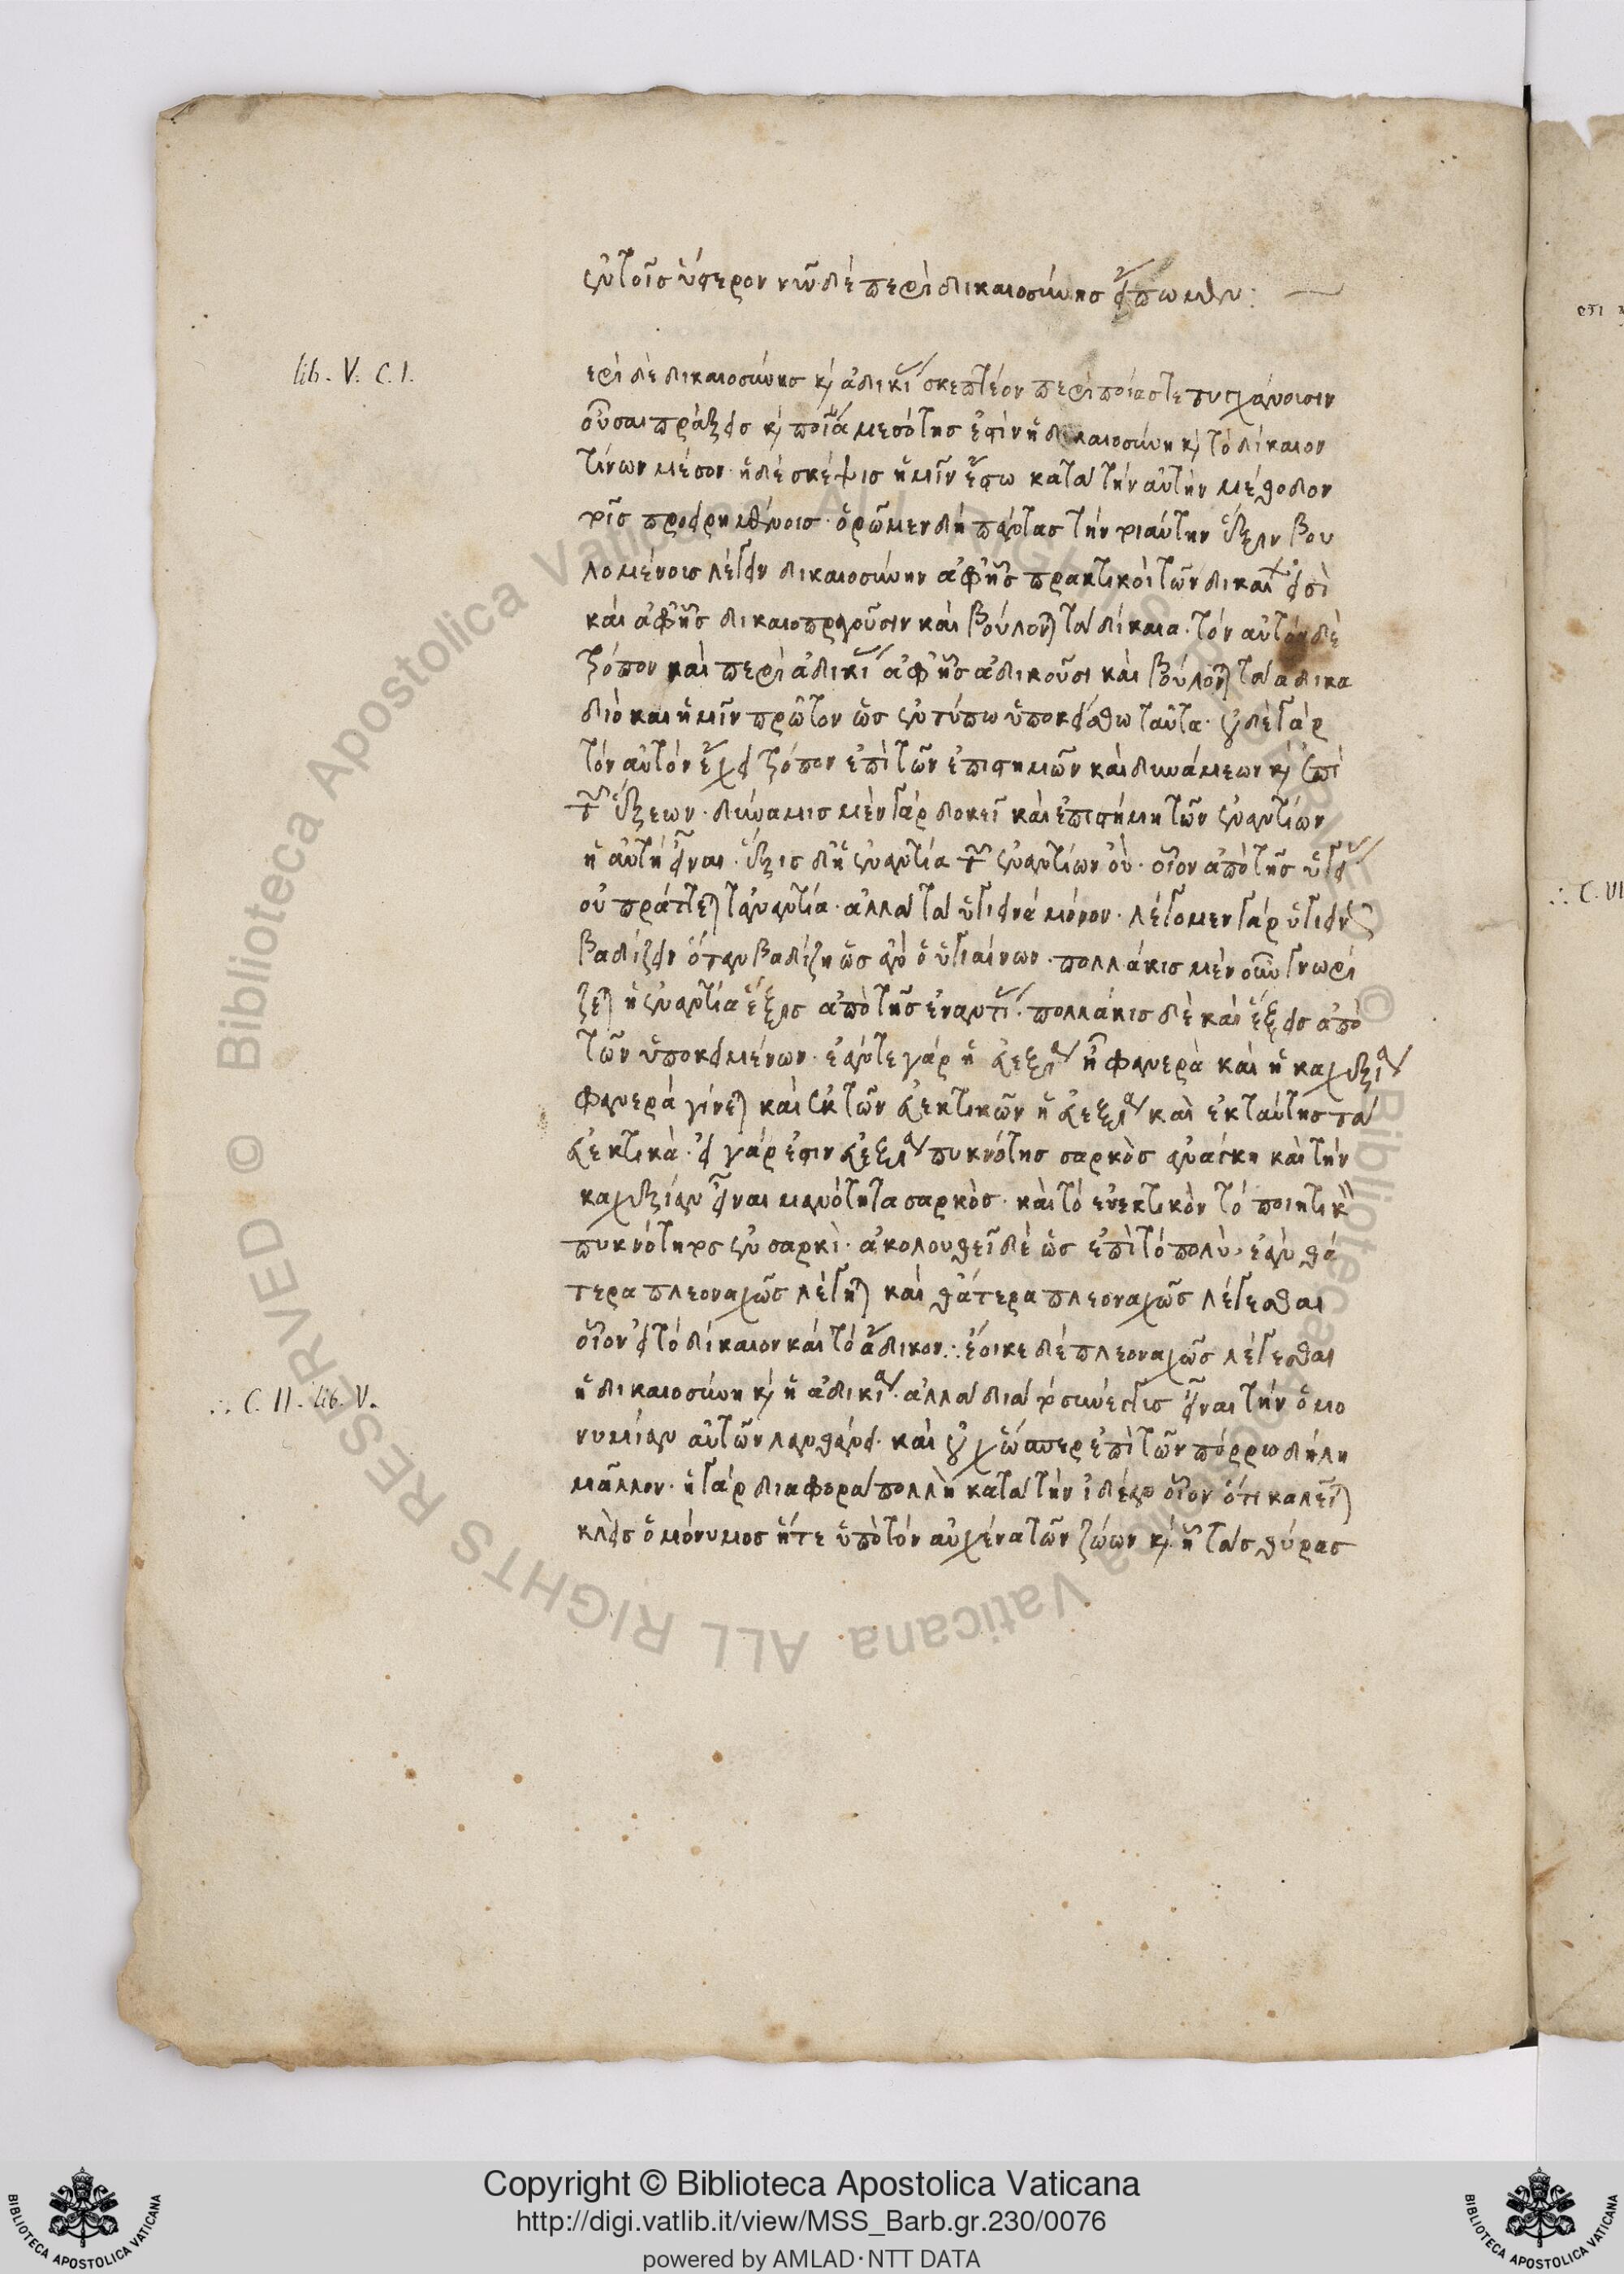 ἐν τοῖς ὕστερον νῦν δὲ περὶ δικαιοσύνης εἴπωμεν :
lib. V. C. I.
ερὶ δὲ δικαιοσύνης κ̀ ἀδικί σκεπτέον περὶ ποίας τε τυγχάνουσιν
οὖσαι πράξεις κ̀ ποία μεσότης ἐστὶν ἡ δικαιοσύνη κ̀ τὸ δίκαιον
τίνων μέσον· ἡ δὲ σκέψις ἡμῖν ἔστω κατὰ τὴν αὐτὴν μέθοδον
τοῖς προειρημένοις· ὁρῶμεν δὴ πάντας τὴν τοιαύτην ἕξιν βου
λομένοις λέγειν δικαιοσύνην ἀφ' ἧς πρακτικοὶ τῶν δικαί εἰσὶ
καὶ ἀφ' ἧς δικαιοπραγοῦσιν καὶ βούλον τὰ δίκαια· τὸν αὐτὸν δὲ
τρόπον καὶ περὶ ἀδικί ἀφ' ἧς ἀδικοῦσι καὶ βούλον τὰ ἄδικα
διὸ καὶ ἡμῖν πρῶτον ὡς ἐν τύπω ὑποκείσθω ταῦτα· οὐδὲ γὰρ
τὸν αὐτὸν ἔχει τρόπον ἐπὶ τῶν ἐπιστημῶν καὶ δυνάμεων κ̀ ἐπὶ
τῶν ἕξεων· δύναμις μὲν γὰρ δοκεῖ καὶ ἐπιστήμη τῶν ἐναντίων
ἡ αὐτὴ εἶναι· ἕξις δ' ἡ ἐναντία τῶν ἐναντίων οὐ· οἷον ἀπὸ τῆς ὑγεί
οὐ πράττε τἀναντία· ἀλλὰ τὰ ὑγιεινὰ μόνον· λέγομεν γὰρ ὑγιειν
βαδίζειν ὅταν βαδίζη ὡς ἂν ὁ ὑγιαίνων· πολλάκις μὲν οὖν γνωρί
ζε ἡ ἐναντία ἕξις ἀπὸ τῆς ἐναντί· πολλάκις δὲ καὶ ἕξεις ἀπὸ
τῶν ὑποκειμένων· ἐάν τε γὰρ ἡ εὐεξία ἦ φανερὰ καὶ ἡ καχεξία
φανερὰ γίνε καὶ ἐκ τῶν εὐεκτικῶν ἡ εὐεξία καὶ ἐκ ταύτης τὰ
εὐεκτικά· εἰ γάρ ἐστιν εὐεξία πυκνότης σαρκὸς ἀνάγκη καὶ τὴν
καχεξίαν εἶναι μανότητα σαρκὸς· καὶ τὸ εὐεκτικὸν τὸ ποιητικ
πυκνότητος ἐν σαρκὶ· ἀκολουθεῖ δὲ ὡς ἐπὶ τὸ πολὺ· ἐὰν θά
τερα πλεοναχῶς λέγη καὶ θάτερα πλεοναχῶς λέγεσθαι
οἷον εἰ τὸ δίκαιον καὶ τὸ ἄδικον.: ἔοικε δὲ πλεοναχῶς λέγεσθαι
∴ C. II. lib. V.
ἡ δικαιοσύνη κ̀ ἡ ἀδικία· ἀλλὰ διὰ τὸ σύνεγγις εἶναι τὴν ὁμο
νυμίαν αὐτῶν λανθάνει· καὶ οὐχ ὥσπερ ἐπὶ τῶν πόρρω δήλη
μᾶλλον· ἡ γὰρ διαφορὰ πολλὴ κατὰ τὴν ἰδέαν οἷον ὅτι καλεῖ
κλεὶς ὁμόνυμος ἥτε ὑπὸ τὸν αὐχένα τῶν ζώων κ̀ ἧ τὰς θύρας
∴ C. VI
Copyright © Biblioteca Apostolica Vaticana
http://digi.vatlib.it/view/MSS_Barb.gr.230/0076
powered by AMLAD·NTT DATA
BIBLIOTECA APOSTOLICA VATICANA
BIBLIOTECA APOSTOLICA VATICANA
Biblioteca Apostolica Vaticana ALL RIGHTS RESERVED ©
Biblioteca Apostolica Vaticana ALL RIGHTS RESERVED ©